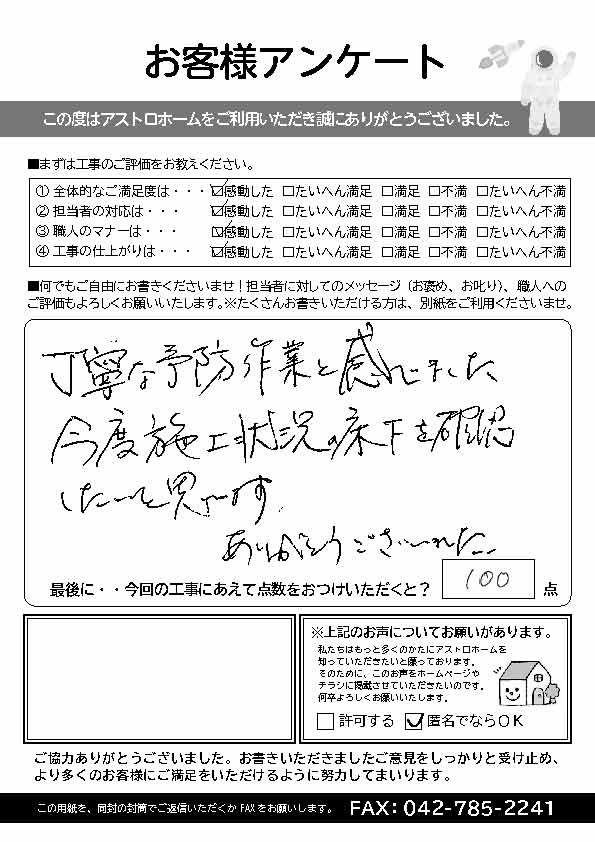 お客様アンケート
この度はアストロホームをご利用いただき誠にありがとうございました。
■まずは工事のご評価をお教えください。
① 全体的なご満足度は・・・☑感動した □たいへん満足 □満足 □不満 □たいへん不満
② 担当者の対応は・・・ ☑感動した □たいへん満足 □満足 □不満 □たいへん不満
③ 職人のマナーは・・・ ☑感動した □たいへん満足 □満足 □不満 □たいへん不満
④ 工事の仕上がりは・・・ ☑感動した □たいへん満足 □満足 □不満 □たいへん不満
■何でもご自由にお書きくださいませ！担当者に対してのメッセージ（お褒め、お叱り）、職人への
ご評価もよろしくお願いいたします。※たくさんお書きいただける方は、別紙をご利用くださいませ。
丁寧な予防作業と感じました
今度施工状況の床下を確認
したいと思います。
ありがとうございました。
最後に・・今回の工事にあえて点数をおつけいただくと？ 100 点
※上記のお声についてお願いがあります。
私たちはもっと多くのかたにアストロホームを
知っていただきたいと願っております。
そのために、このお声をホームページや
チラシに掲載させていただきたいのです。
何卒よろしくお願いいたします。
□許可する ☑匿名でならＯＫ
ご協力ありがとうございました。お書きいただきましたご意見をしっかりと受け止め、
より多くのお客様にご満足をいただけるように努力してまいります。
この用紙を、同封の封筒でご返信いただくかFAXをお願いします。 FAX：042-785-2241